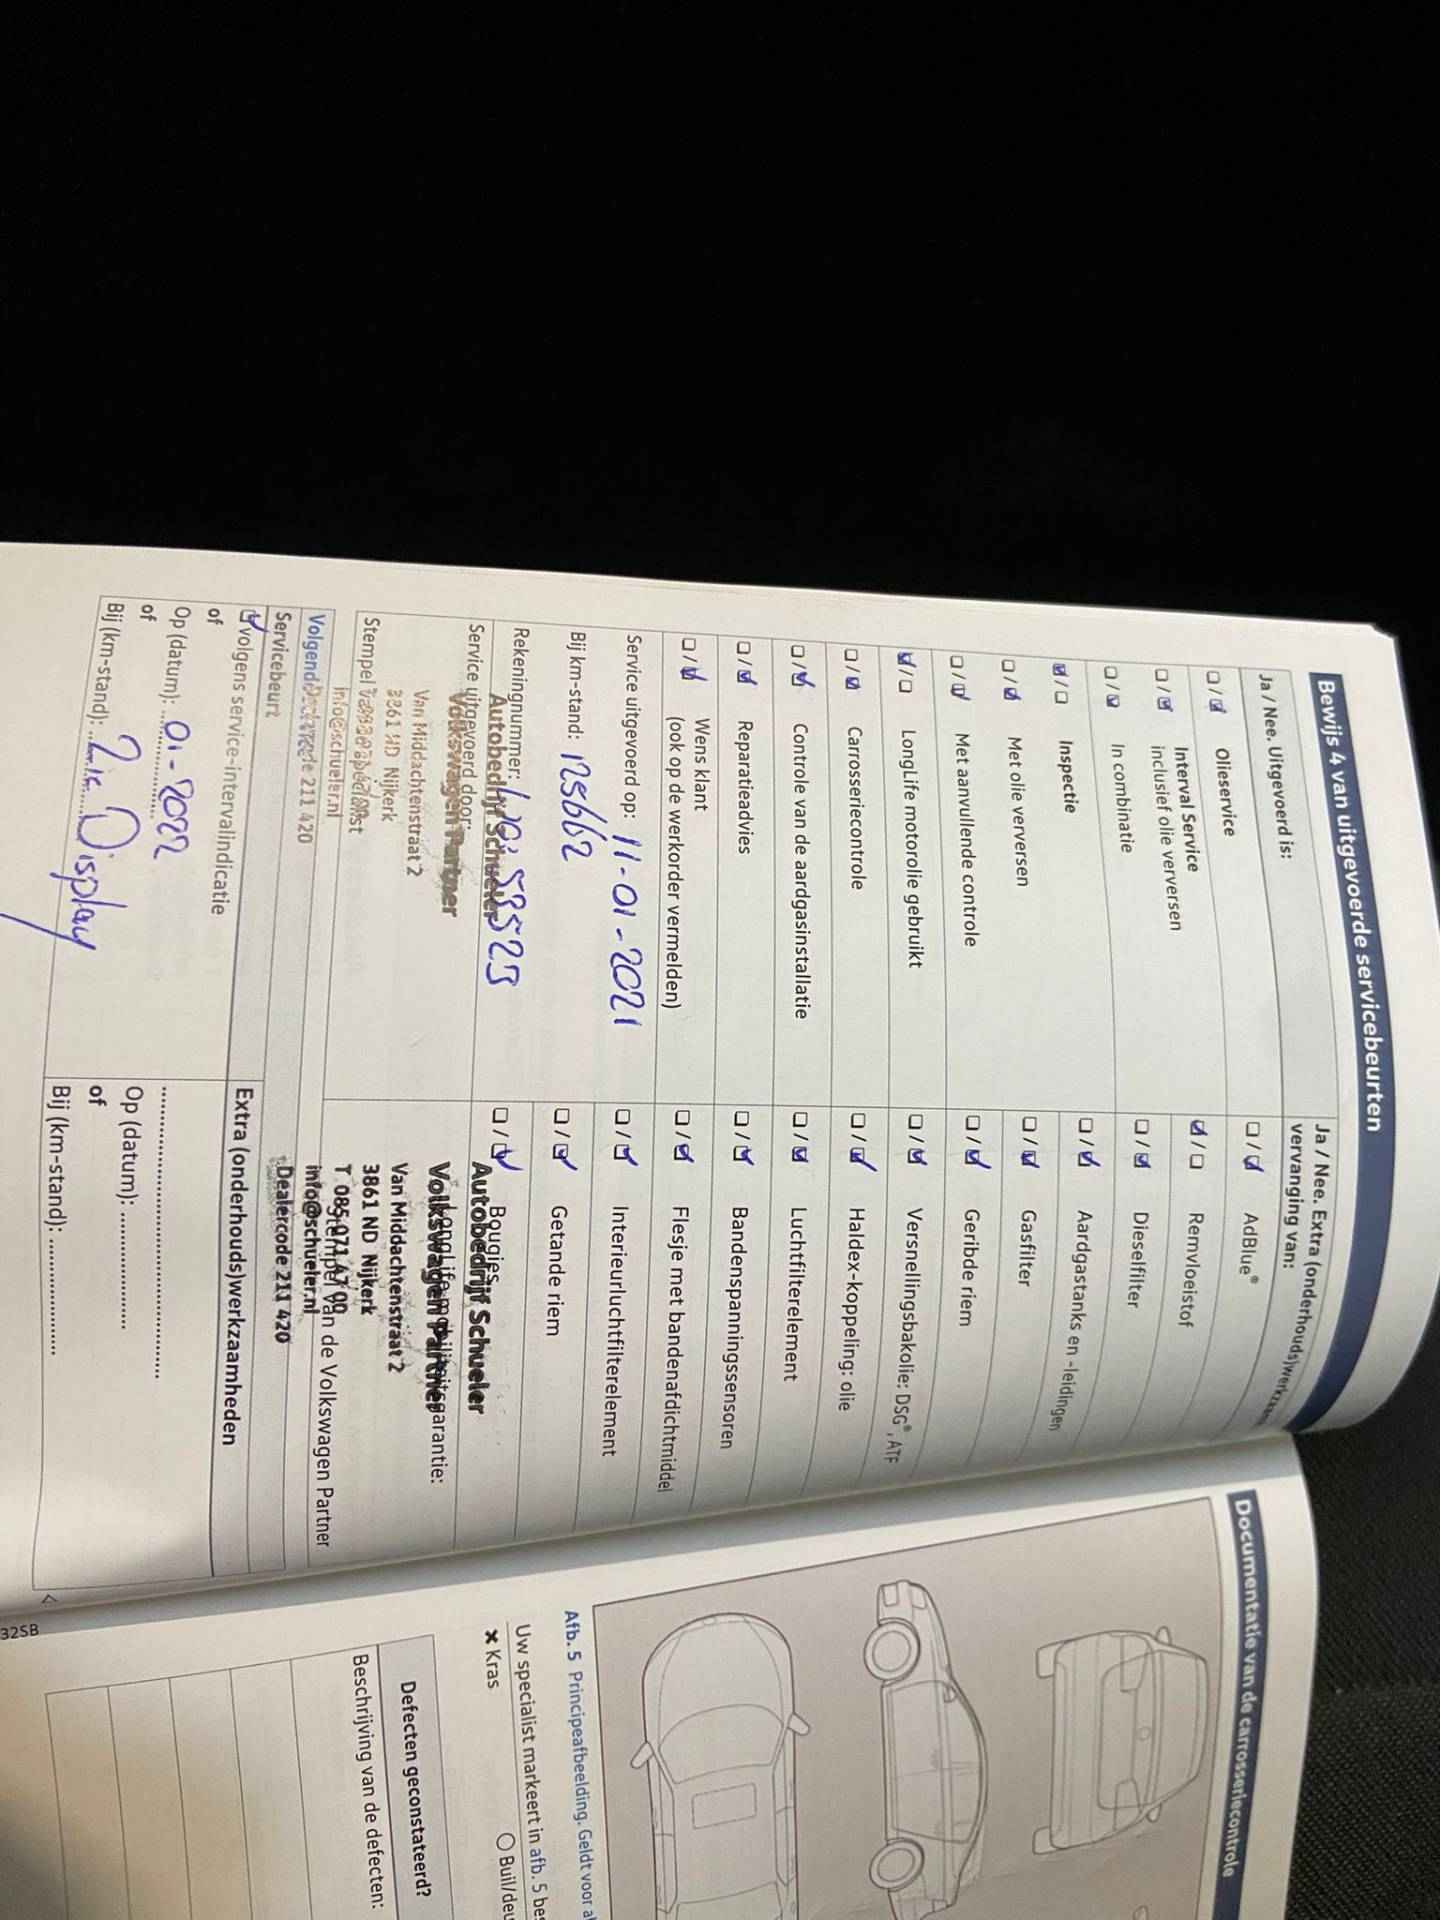 Bewijs 4 van uitgevoerde servicebeurten
Ja / Nee. Uitgevoerd is:
☐ / ☑ Olieservice
☐ / ☑ Interval Service
inclusief olie verversen
☐ / ☑ In combinatie
☑ / ☐ Inspectie
☐ / ☑ Met olie verversen
☐ / ☑ Met aanvullende controle
☑ / ☐ LongLife motorolie gebruikt
☐ / ☑ Carrosseriecontrole
☐ / ☑ Controle van de aardgasinstallatie
☐ / ☑ Reparatieadvies
☐ / ☑ Wens klant
(ook op de werkorder vermelden)
Service uitgevoerd op: 11-01-2021
Bij km-stand: 125662
Rekeningnummer:
Service uitgevoerd door:
Autobedrijf Schueler
Volkswagen Partner
Van Middachtenstraat 2
3861 ND Nijkerk
Stempel
info@schueler.nl
Dealercode 211 420
Volgende
Servicebeurt
☑ volgens service-intervalindicatie
of
Op (datum): 01-2022
of
Bij (km-stand): Display
Ja / Nee. Extra (onderhouds)werkzaam
vervanging van:
☐ / ☑ AdBlue®
☑ / ☐ Remvloeistof
☐ / ☑ Dieselfilter
☐ / ☑ Aardgastanks en -leidingen
☐ / ☑ Gasfilter
☐ / ☑ Geribde riem
☐ / ☑ Versnellingsbakolie: DSG®, ATF
☐ / ☑ Haldex-koppeling: olie
☐ / ☑ Luchtfilterelement
☐ / ☑ Bandenspanningssensoren
☐ / ☑ Flesje met bandenafdichtmiddel
☐ / ☑ Interieurluchtfilterelement
☐ / ☑ Getande riem
☐ / ☑ Bougies
LongLife mobiliteitsgarantie:
Autobedrijf Schueler
Volkswagen Partner
Van Middachtenstraat 2
3861 ND Nijkerk
T 085 071 47 00
Stempel van de Volkswagen Partner
info@schueler.nl
Dealercode 211 420
Extra (onderhouds)werkzaamheden
Op (datum):
of
Bij (km-stand):
325B
Documentatie van de carrosseriecontrole
Afb. 5 Principeafbeelding. Geldt voor al
Uw specialist markeert in afb. 5 bes
✖ Kras
○ Buil/deu
Defecten geconstateerd?
Beschrijving van de defecten: